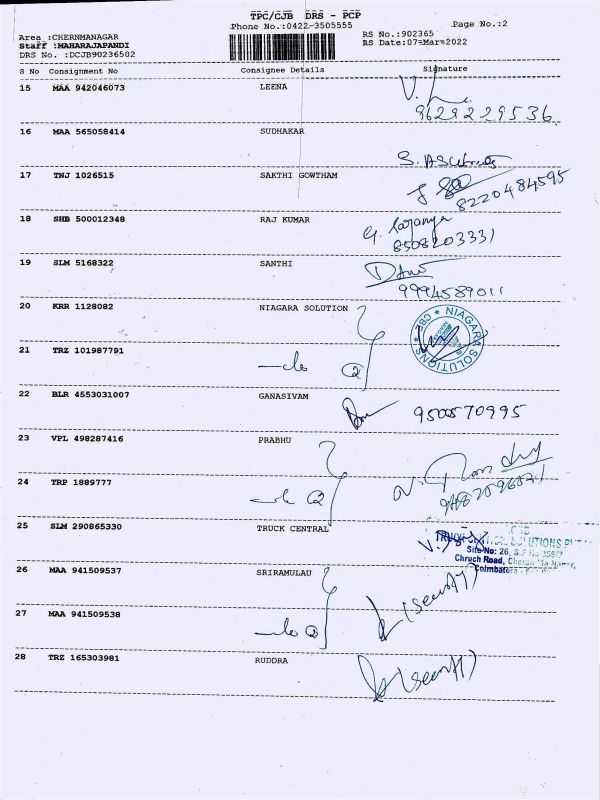 TPC/CJB DRS - PCP
Phone No.:0422-3505555
Page No.:2
Area :CHERNMANAGAR
Staff :MAHARAJAPANDI
DRS No. :DCJB90236502
RS No.:902365
RS Date:07-Mar-2022
S No Consignment No Consignee Details Signature
15 MAA 942046073 LEENA
9629229536
16 MAA 565058414 SUDHAKAR
17 TNJ 1026515 SAKTHI GOWTHAM
8220484595
18 SHB 500012348 RAJ KUMAR
8508203331
19 SLM 5168322 SANTHI
9994589011
20 KRR 1128082 NIAGARA SOLUTION
NIAGARA SOLUTIONS CBE
21 TRZ 101987791
22 BLR 4553031007 GANASIVAM
23 VPL 498287416 PRABHU
24 TRP 1889777
25 SLM 290865330 TRUCK CENTRAL
SOLUTIONS
Site No: 26,
Chruch Road,
Coimbatore
26 MAA 941509537 SRIRAMULAU
(Security)
27 MAA 941509538
28 TRZ 165303981 RUDDRA
(Security)